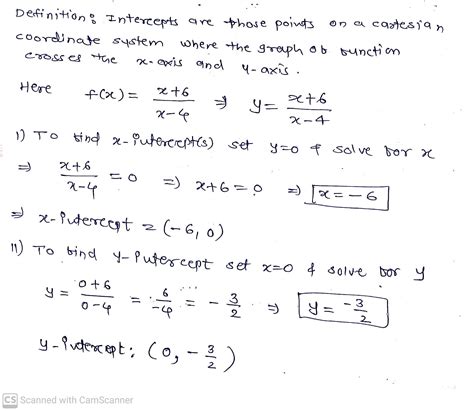 Definition: Intercepts are those points on a cartesian
coordinate system where the graph of function
crosses the x-axis and y-axis.
Here f(x) = x+6/x-4 ⇒ y = x+6/x-4
i) To find x-intercept(s) set y=0 & solve for x
⇒ x+6/x-4 = 0 ⇒ x+6=0 ⇒ x=-6
⇒ x-intercept = (-6, 0)
ii) To find y-intercept set x=0 & solve for y
y = 0+6/0-4 = 6/-4 = -3/2 ⇒ y = -3/2
y-intercept: (0, -3/2)
CS Scanned with CamScanner